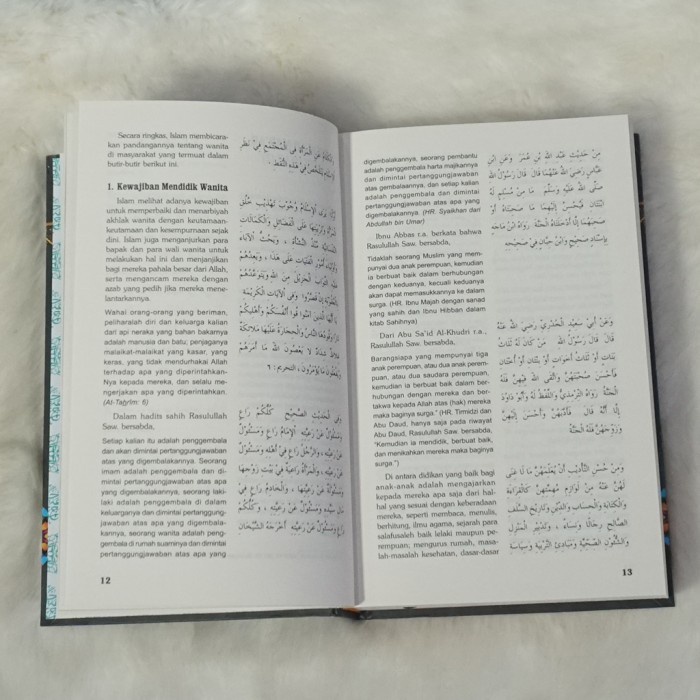 Secara ringkas, Islam membicara-
kan pandangannya tentang wanita
di masyarakat yang termuat dalam
butir-butir berikut ini.
1. Kewajiban Mendidik Wanita
Islam melihat adanya kewajiban
untuk memperbaiki dan menarbiyah
akhlak wanita dengan keutamaan-
keutamaan dan kesempurnaan sejak
dini. Islam juga menganjurkan para
bapak dan para wali wanita untuk
melakukan hal ini dan menjanjikan
bagi mereka pahala besar dari Allah,
serta mengancam mereka dengan
azab yang pedih jika mereka mene-
lantarkannya.
Wahai orang-orang yang beriman,
peliharalah diri dan keluarga kalian
dari api neraka yang bahan bakarnya
adalah manusia dan batu; penjaganya
malaikat-malaikat yang kasar, yang
keras, yang tidak mendurhakai Allah
terhadap apa yang diperintahkan-
Nya kepada mereka, dan selalu me-
ngerjakan apa yang diperintahkan.
(At-Taḥrîm: 6)
Dalam hadits sahih Rasulullah
Saw. bersabda,
Setiap kalian itu adalah penggembala
dan akan dimintai pertanggungjawaban
atas yang digembalakannya. Seorang
imam adalah penggembala dan di-
mintai pertanggungjawaban atas apa
yang digembalakannya, seorang laki-
laki adalah penggembala di dalam
keluarganya dan dimintai pertanggung-
jawaban atas apa yang digembala-
kannya, seorang wanita adalah peng-
gembala di rumah suaminya dan dimintai
pertanggungjawaban atas apa yang
عن المرأة في المجتمع في نظر
الإسلام يتلخص في هذه النقط :
يرى الإسلام وجوب تهذيب خلق
المرأة وتربيتها على الفضائل والكمالات
النفسانية منذ النشأة ، ويحث الآباء
وأولياء أمور الفتيات على هذا ، ويعدهم
عليه الثواب الجزيل من الله ويتوعدهم
بالعقوبة إن قصروا وفي الآيات الكريمة
يا أيها الذين آمنوا قوا أنفسكم وأهليكم
نارا وقودها الناس والحجارة عليها ملائكة
غلاظ شداد لا يعصون الله ما أمرهم
ويفعلون ما يؤمرون ، التحريم: ٦
وفي الحديث الصحيح كلكم راع
ومسئول عن رعيته الإمام راع ومسئول
عن رعيته ، والرجل راع في أهله ومسئول
عن رعيته ، والمرأة راعية في بيت زوجها
ومسئولة عن رعيتها ، والخادم راع في
مال سيده ومسئول عن رعيته ، وكلكم
راع ومسئول عن رعيته أخرجه الشيخان
12
digembalakannya, seorang pembantu
adalah penggembala harta majikannya
dan dimintai pertanggungjawaban
atas gembalaannya, dan setiap kalian
adalah penggembala dan dimintai
pertanggungjawaban atas apa yang
digembalakannya. (HR. Syaikhan dari
Abdullah bin Umar)
Ibnu Abbas r.a. berkata bahwa
Rasulullah Saw. bersabda,
Tidaklah seorang Muslim yang mem-
punyai dua anak perempuan, kemudian
ia berbuat baik dalam berhubungan
dengan keduanya, kecuali keduanya
akan dapat memasukkannya ke dalam
surga. (HR. Ibnu Majah dengan sanad
yang sahih dan Ibnu Hibban dalam
kitab Sahihnya)
Dari Abu Sa'id Al-Khudri r.a.,
Rasulullah Saw. bersabda,
Barangsiapa yang mempunyai tiga
anak perempuan, atau dua anak perem-
puan, atau dua saudara perempuan,
kemudian ia berbuat baik dalam ber-
hubungan dengan mereka dan ber-
takwa kepada Allah atas (hak) mereka
maka baginya surga." (HR. Tirmidzi dan
Abu Daud, hanya saja pada riwayat
Abu Daud, Rasulullah Saw. bersabda,
"Kemudian ia mendidik, berbuat baik,
dan menikahkan mereka maka baginya
surga.")
Di antara didikan yang baik bagi
anak-anak adalah mengajarkan
kepada mereka apa saja dari hal-
hal yang sesuai dengan keberadaan
mereka, seperti membaca, menulis,
berhitung, ilmu agama, sejarah para
salafusaleh baik lelaki maupun pe-
rempuan; mengurus rumah, masa-
lah-masalah kesehatan, dasar-dasar
من حديث عبد الله بن عمر وعن ابن
عباس رضي الله عنهما قال قال رسول الله
صلى الله عليه وسلم ما من مسلم له
ابنتان فيحسن إليهما ما صحبتاه أو
صحبهما إلا أدخلتاه الجنة رواه ابن ماجه
بإسناد صحيح وابن حبان في صحيحه
وعن أبي سعيد الخدري رضي الله عنه
قال قال رسول الله من كان له ثلاث
بنات أو ثلاث أخوات أو بنتان أو أختان
فأحسن صحبتهن واتقى الله فيهن فله
الجنة رواه الترمذي واللفظ له وأبو داود
إلا أنه قال فأدبهن وأحسن إليهن
وزوجهن فله الجنة
ومن حسن التأديب أن يعلمهن ما لا غنى
لهن عنه من لوازم مهمتهن كالقراءة
والكتابة والحساب والدين وتاريخ السلف
الصالح رجالا ونساء ، وتدبير المنزل
والشئون الصحية ومبادئ التربية وسياسة
13